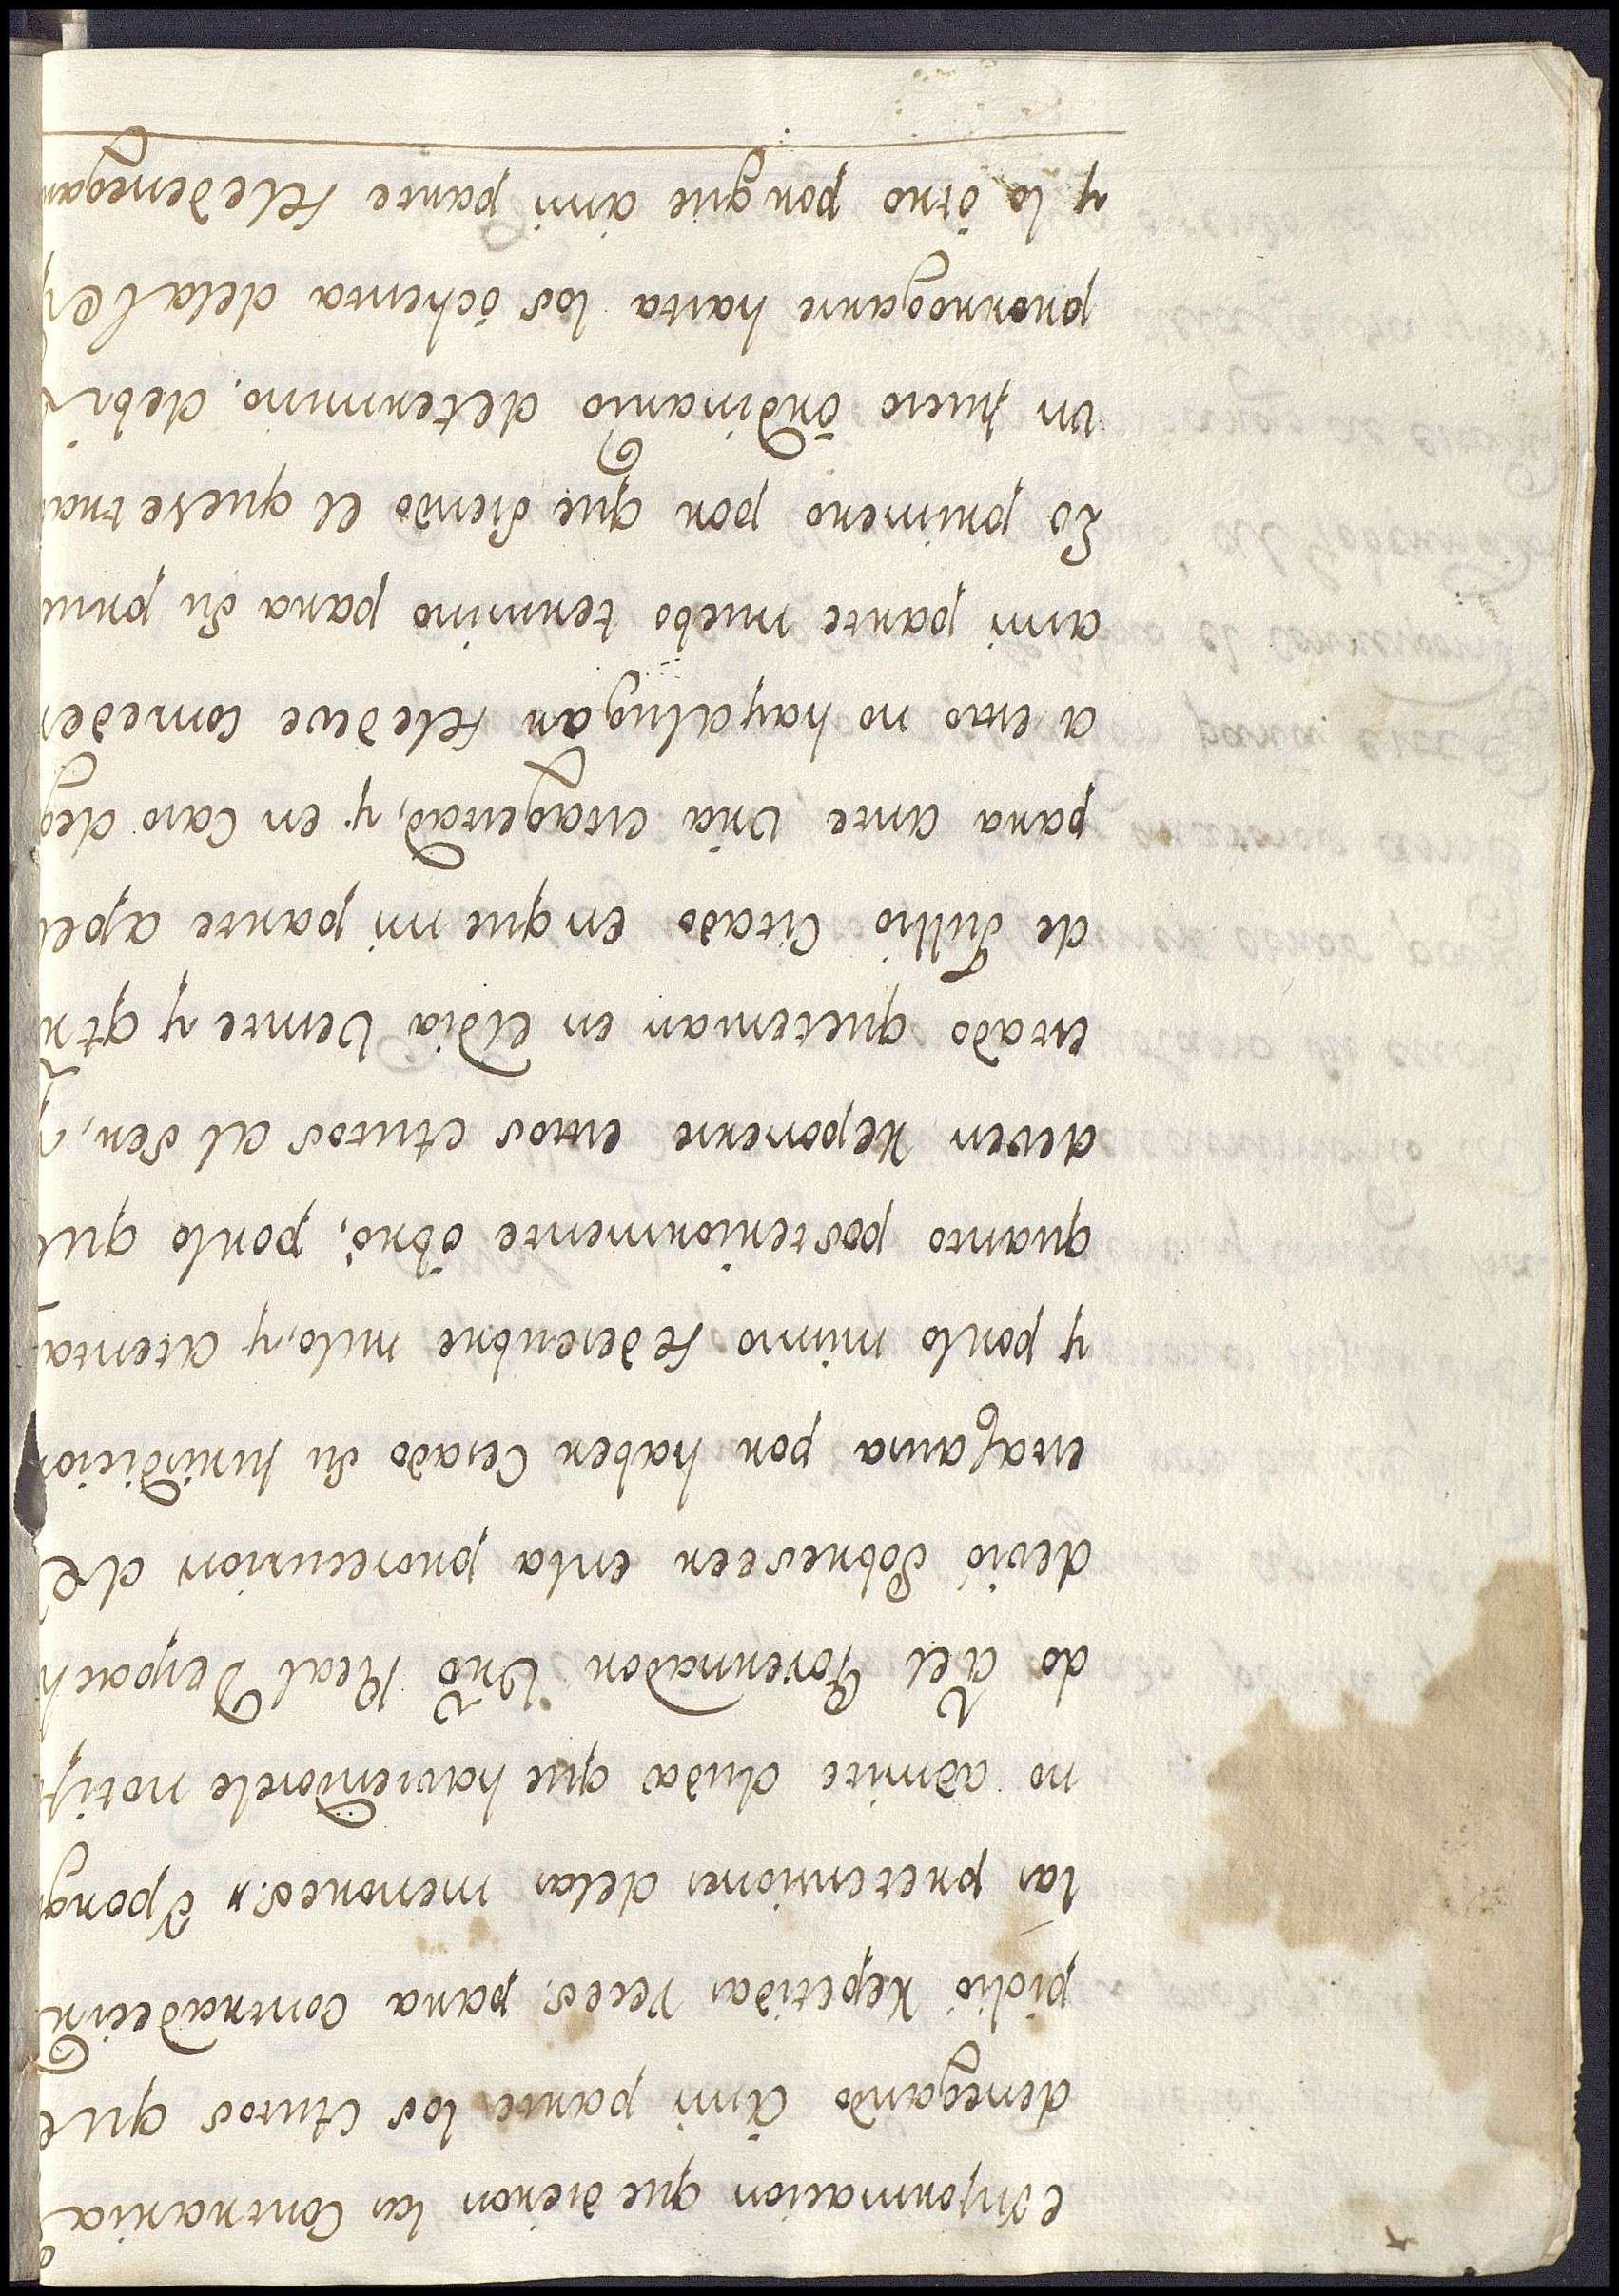 é ynformacion que dieron las Contraria
denegando ami parte los Autos que
pidió repetidas veces para contradecir
las pretensiones delas menores: ò porq
no admite duda que haviendosele notif
do al Governador Vro Real Despach
devió sobreseer enla prosecusion de
esta causa por haber Cesado su jurisdicion
y porlo mismo se descubre nulo, y atenta
quanto posteriormente òbró; porlo que
deven reponerse estos Autos al ser, y
estado que tenian en eldia veinte y qtr
de Jullio Citado enque mi parte apel
para ante Vra Magestad, y en Caso deq
a esto no haya lugar sele deve conceder
ami parte nuebo termino para su prue
Lo primero por que siendo el que se tra
un juicio òrdinario determino, debi
prorrogarse hasta los òchenta dela Ley
y lo òtro por que àmi parte sele denegar